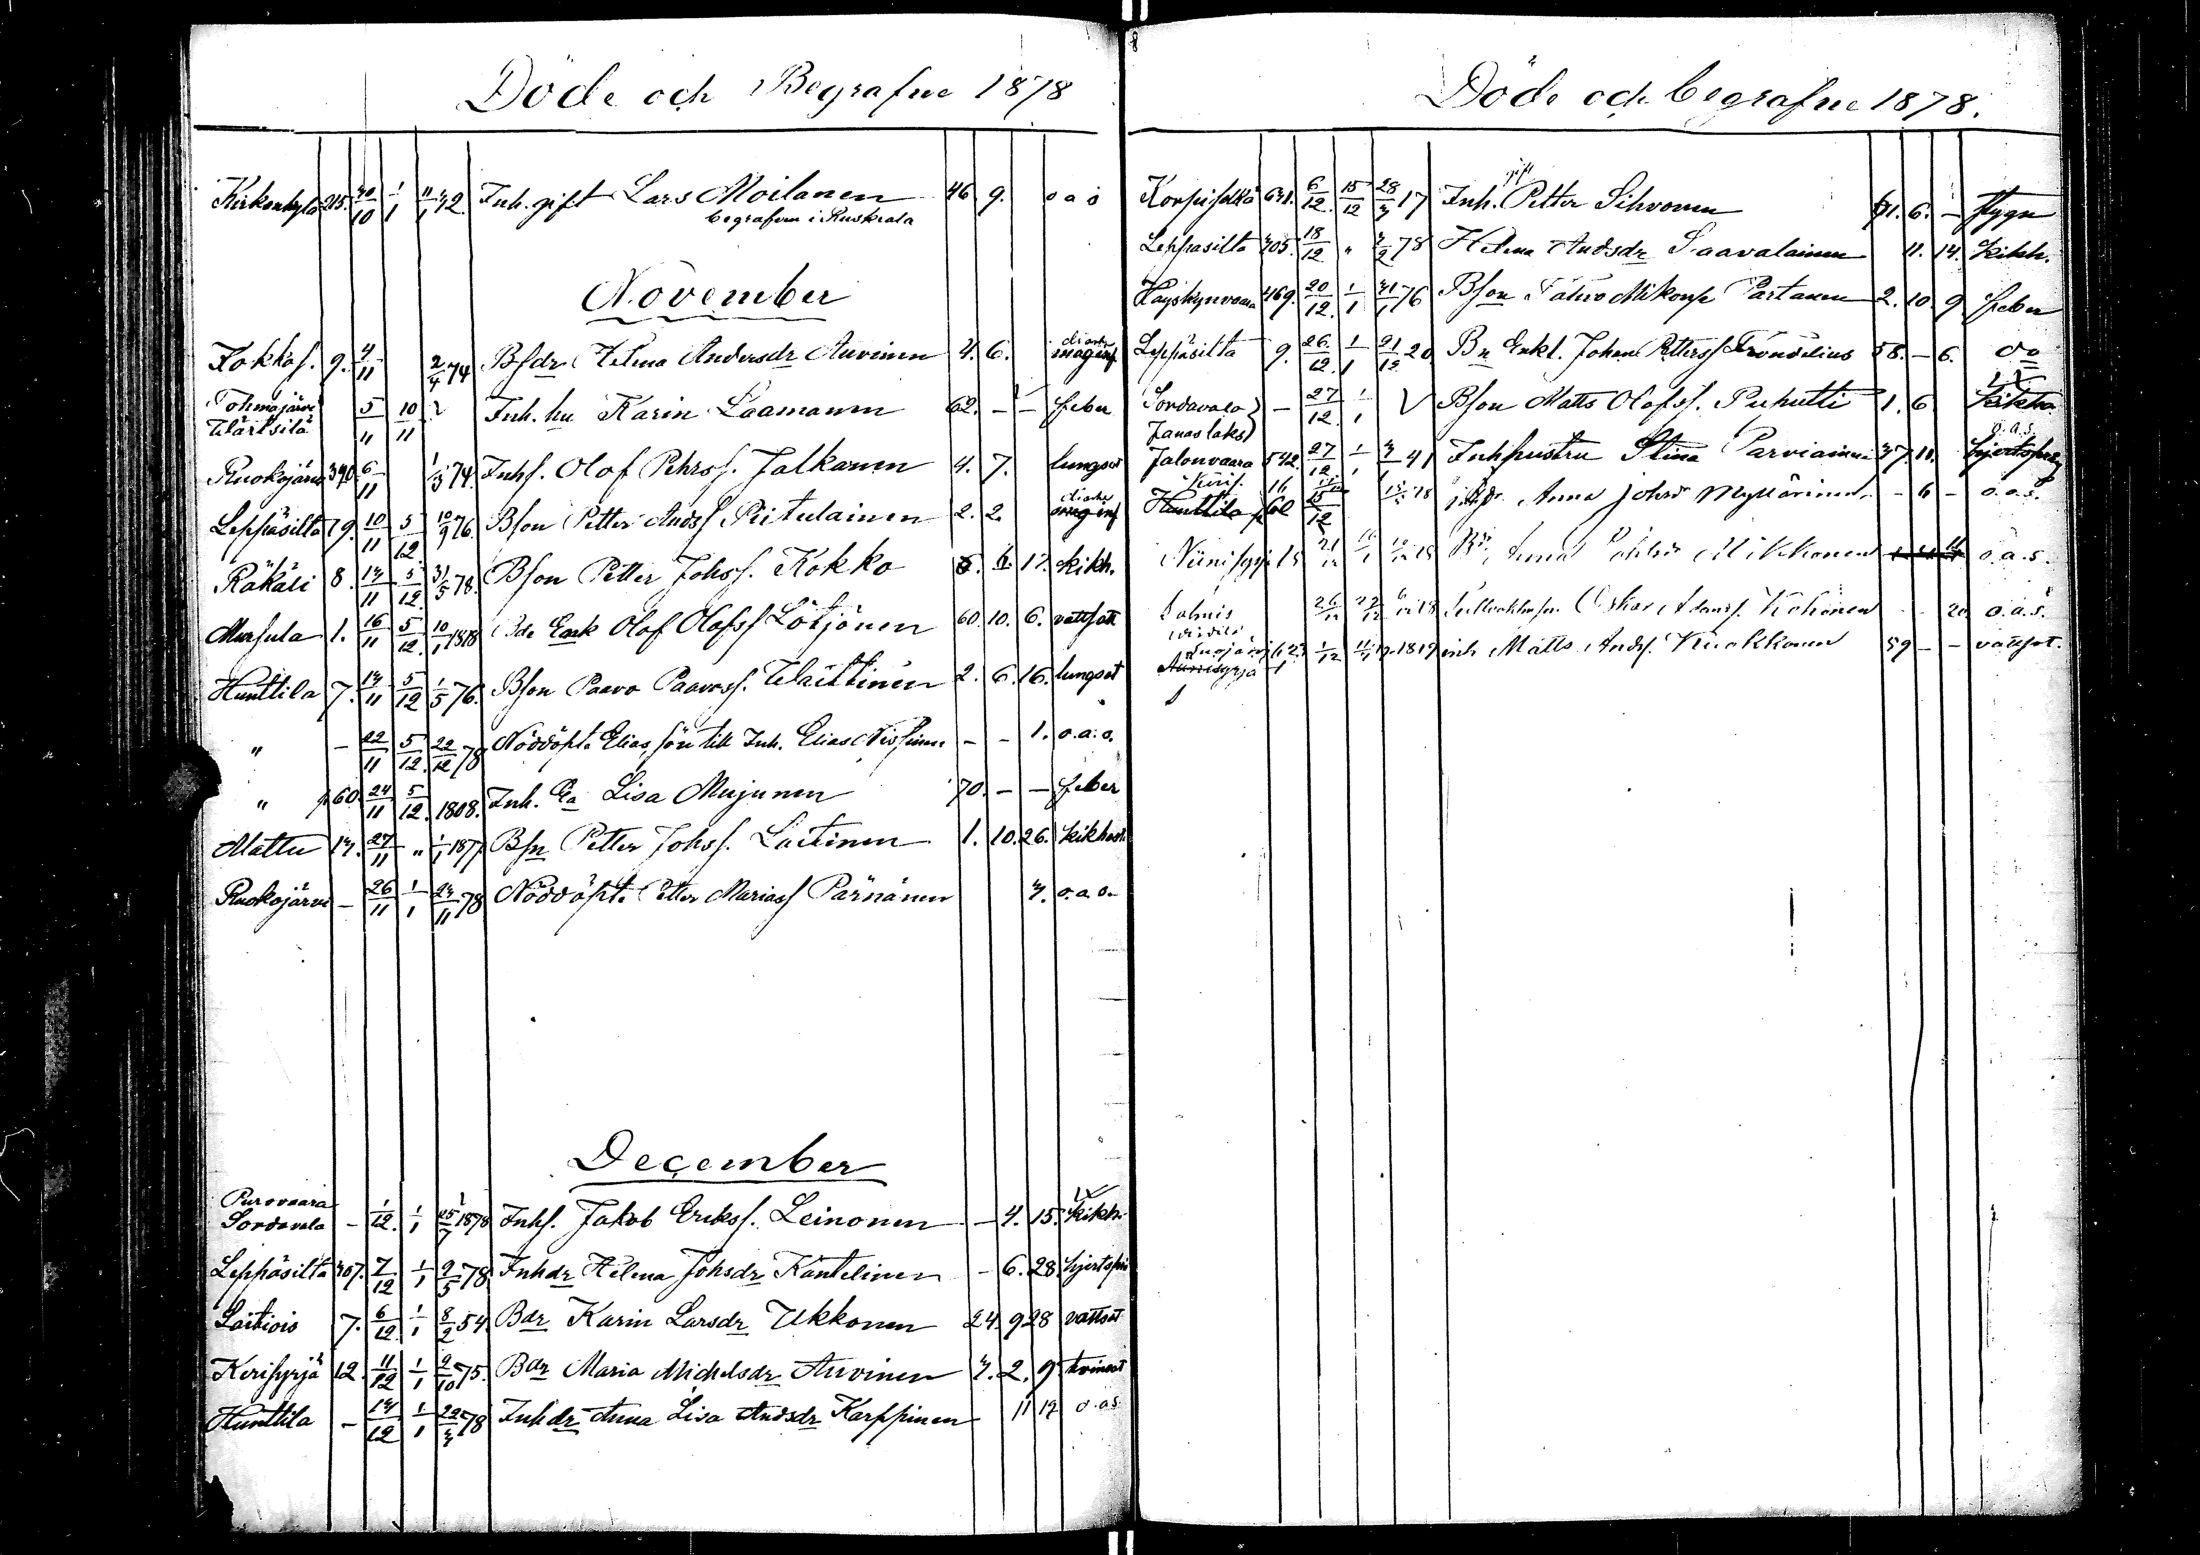 Döde och Begrafne 1878
Kirkonkylä 215. 30/10 1/1 11/1 32. Inh. gift Lars Moilanen 46 9. o a o
begrafven i Ruskeala
November
Kokkos. 9. 4/11 2/4 74 Bsdr Helena Andersdr Auvinen 4. 6. diarhe mag inf
Tohmajärvi
Wärtsilä 5/11 10/11 Inh. hu Karin Laamanen 62. – – feber
Ruokojärvi 390 6/11 1/3 74. Inhs. Olof Pehrss. Jalkanen 4. 7. lungsot
Leppäsilta 19. 10/11 5/12 10/9 76. Bson Petter Andss Piitulainen 2. 2. diarhe mag inf
Räkäli 8. 14/11 5/12 31/5 78. Bson Petter Johss. Kokko 5. 17. kikh.
Mursula 1. 16/11 5/12 10/1 1818 Bde Enk Olof Olofss Lötjönen 60. 10. 6. vattsot
Hunttila 7. 14/11 5/12 1/5 76. Bson Paavo Paavoss. Waittinen 2. 6. 16. lungsot
" – 22/11 5/12 22/12 78 Nöddöpt. Elias, son till Inh. Elias Nissinen – – 1. o.a.o.
" p 60 24/11 5/12. 1808. Inh. Ea Lisa Mujunen 70. – – feber
Mattu 14. 27/11 " 1/1 1877. Bsn Petter Johss. Laitinen 1. 10. 26. kikhost
Ruokojärvi – 26/11 1/1 23/11 78 Nöddöpt. Petter Mariass Pärnänen 3. o.a.o.
December
Purovaara
Sordavala – 1/12. 1/1 25/7 1878 Inhs. Jakob Erikss. Leinonen – 4. 15. Kikh.
Leppäsilta 307. 7/12 1/1 9/5 78 Inhdr Helena Johsdr Kantelinen – 6. 28. hjertspr
Laitiois 7. 6/12 1/1 8/2 54. Bdr Karin Larsdr Ukkonen 24. 9 28 vattsot
Kerisyrjä 12. 11/12 1/1 2/10 75. Bdr Maria Michelsdr Auvinen 3. 2. 9. tvinsot
Hunttila – 14/12 1/1 22/3 78 Inhdr Anna Lisa Andsdr Karppinen 11 o.a.s.
Döde och begrafne 1878.
gift
Korpiselkä 631. 6/12. 15/12 28/3 17 Inh. Petter Sihvonen 61. 6. – flygn
Leppäsilta 305. 18/12 " 4/2 78 Helena Andsdr Saavalainen 11. 14. kikh.
Häyskynvaara 469. 20/12. 1/1 31/1 76 Bson Tahvo Mikonp. Partanen 2. 10 9 feber
Leppäsilta 9. 26/12. 1/1 21/12 20 Bn Enkl. Johan Petterss Frondelius 58. – 6. do
Sordavala – 27/12. 1/1 Bson Matts Olofss. Puhutti 1. 6 Kikho
Janaslaks
Jalonvaara 542. 27/12. 1/1 3/3 41 Inhhustru Stina Parviainen 37. 10. hjertspr
Hunttila 60 16 /12 78 Anna Johsdr Myllärinen – 6 – o.a.s.
Niinisyrj. 15 21/12 Bdr Anna Mikkonen o.a.s.
Oskar Adamss. Kohonen – – 20. o.a.s.
1/12 1819 inh Matts Andss. Kuokkanen 59 – – vattsot.